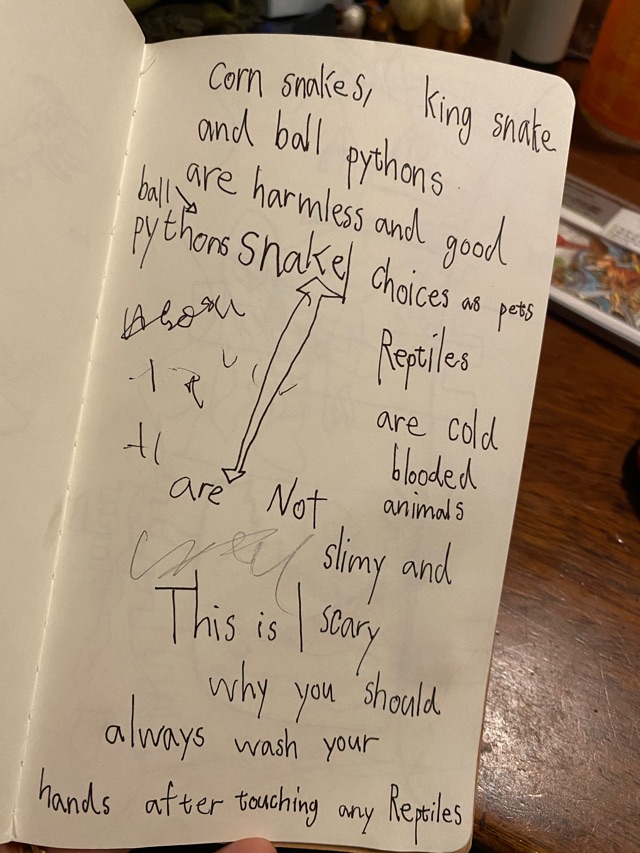 corn snakes, king snake
and ball pythons
are harmless and good
choices as pets
ball
pythons snake
Reptiles
are cold
blooded
animals
are Not
slimy and
scary
This is
why you should
always wash your
hands after touching any Reptiles